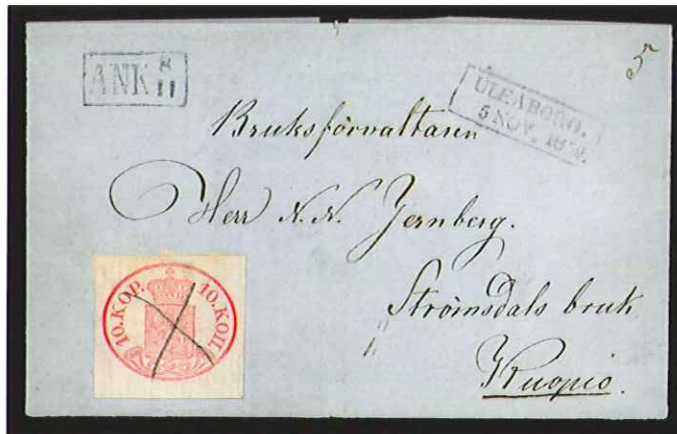 ANK 8
11
5
ULEÅBORG.
5 NOV.
Bruksförvaltaren
Herr N. N. Jernberg.
Strömsdals bruk
Kuopio.
10.KOP. 10.КОП.